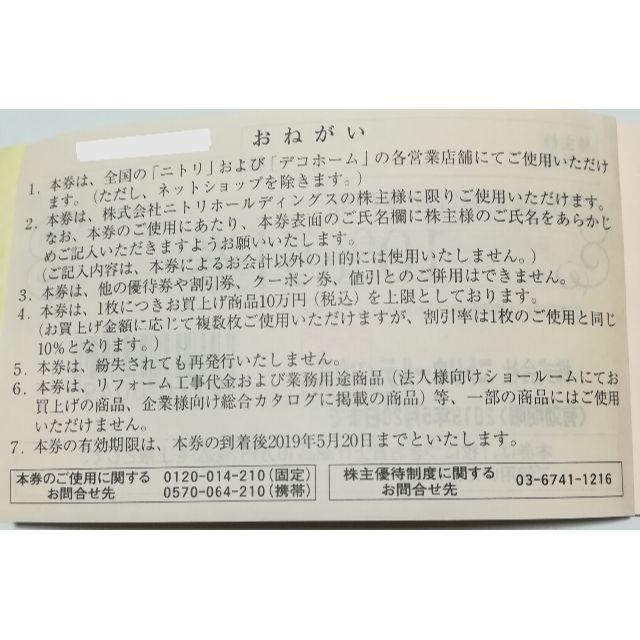 おねがい
1. 本券は、全国の「ニトリ」および「デコホーム」の各営業店舗にてご使用いただけ
ます。(ただし、ネットショップを除きます。)
2. 本券は、株式会社ニトリホールディングスの株主様に限りご使用いただけます。
なお、本券のご使用にあたり、本券表面のご氏名欄に株主様のご氏名をあらかじ
めご記入いただきますようお願いいたします。
(ご記入内容は、本券によるお会計以外の目的には使用いたしません。)
3. 本券は、他の優待券や割引券、クーポン券、値引とのご併用はできません。
4. 本券は、1枚につきお買上げ商品10万円(税込)を上限としております。
(お買上げ金額に応じて複数枚ご使用いただけますが、割引率は1枚のご使用と同じ
10%となります。)
5. 本券は、紛失されても再発行いたしません。
6. 本券は、リフォーム工事代金および業務用途商品(法人様向けショールームにてお
買上げの商品、企業様向け総合カタログに掲載の商品)等、一部の商品にはご使用
いただけません。
7. 本券の有効期限は、本券の到着後2019年5月20日までといたします。
本券のご使用に関する
お問合せ先
0120-014-210(固定)
0570-064-210(携帯)
株主優待制度に関する
お問合せ先
03-6741-1216